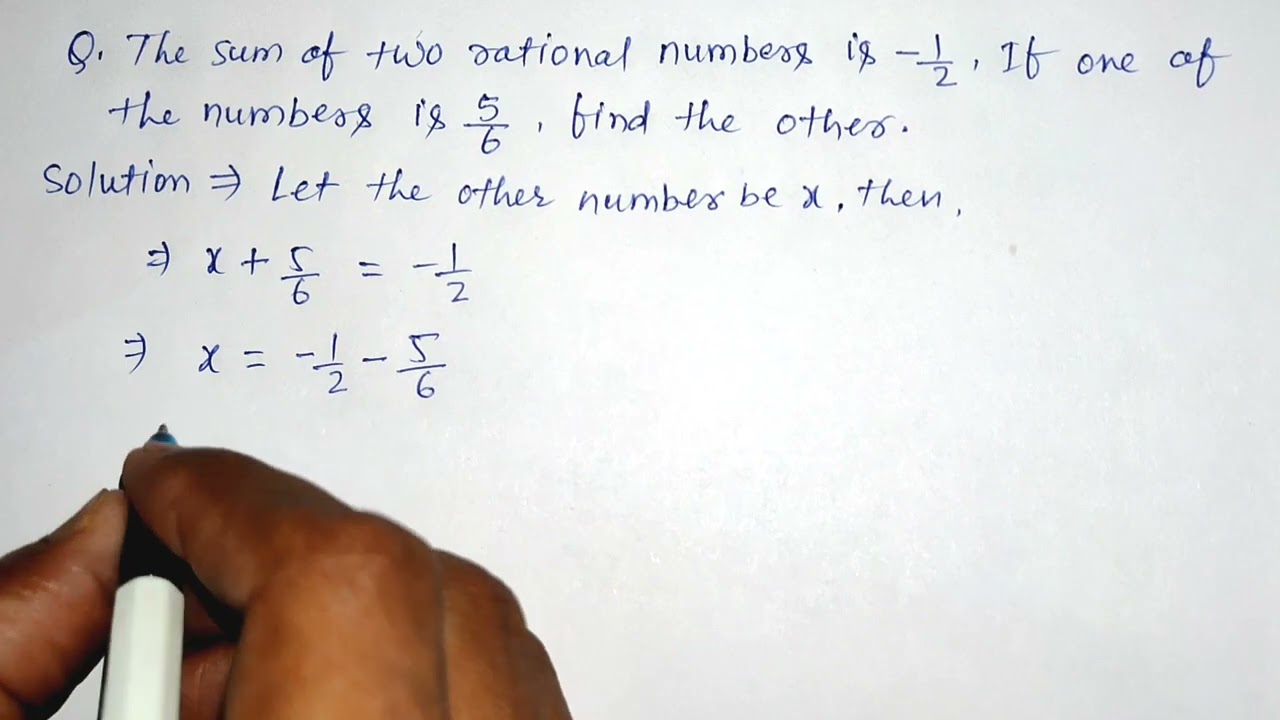 Q. The sum of two rational numbers is -1/2, If one of
the numbers is 5/6, find the other.
Solution ⇒ Let the other number be x, then,
⇒ x + 5/6 = -1/2
⇒ x = -1/2 - 5/6